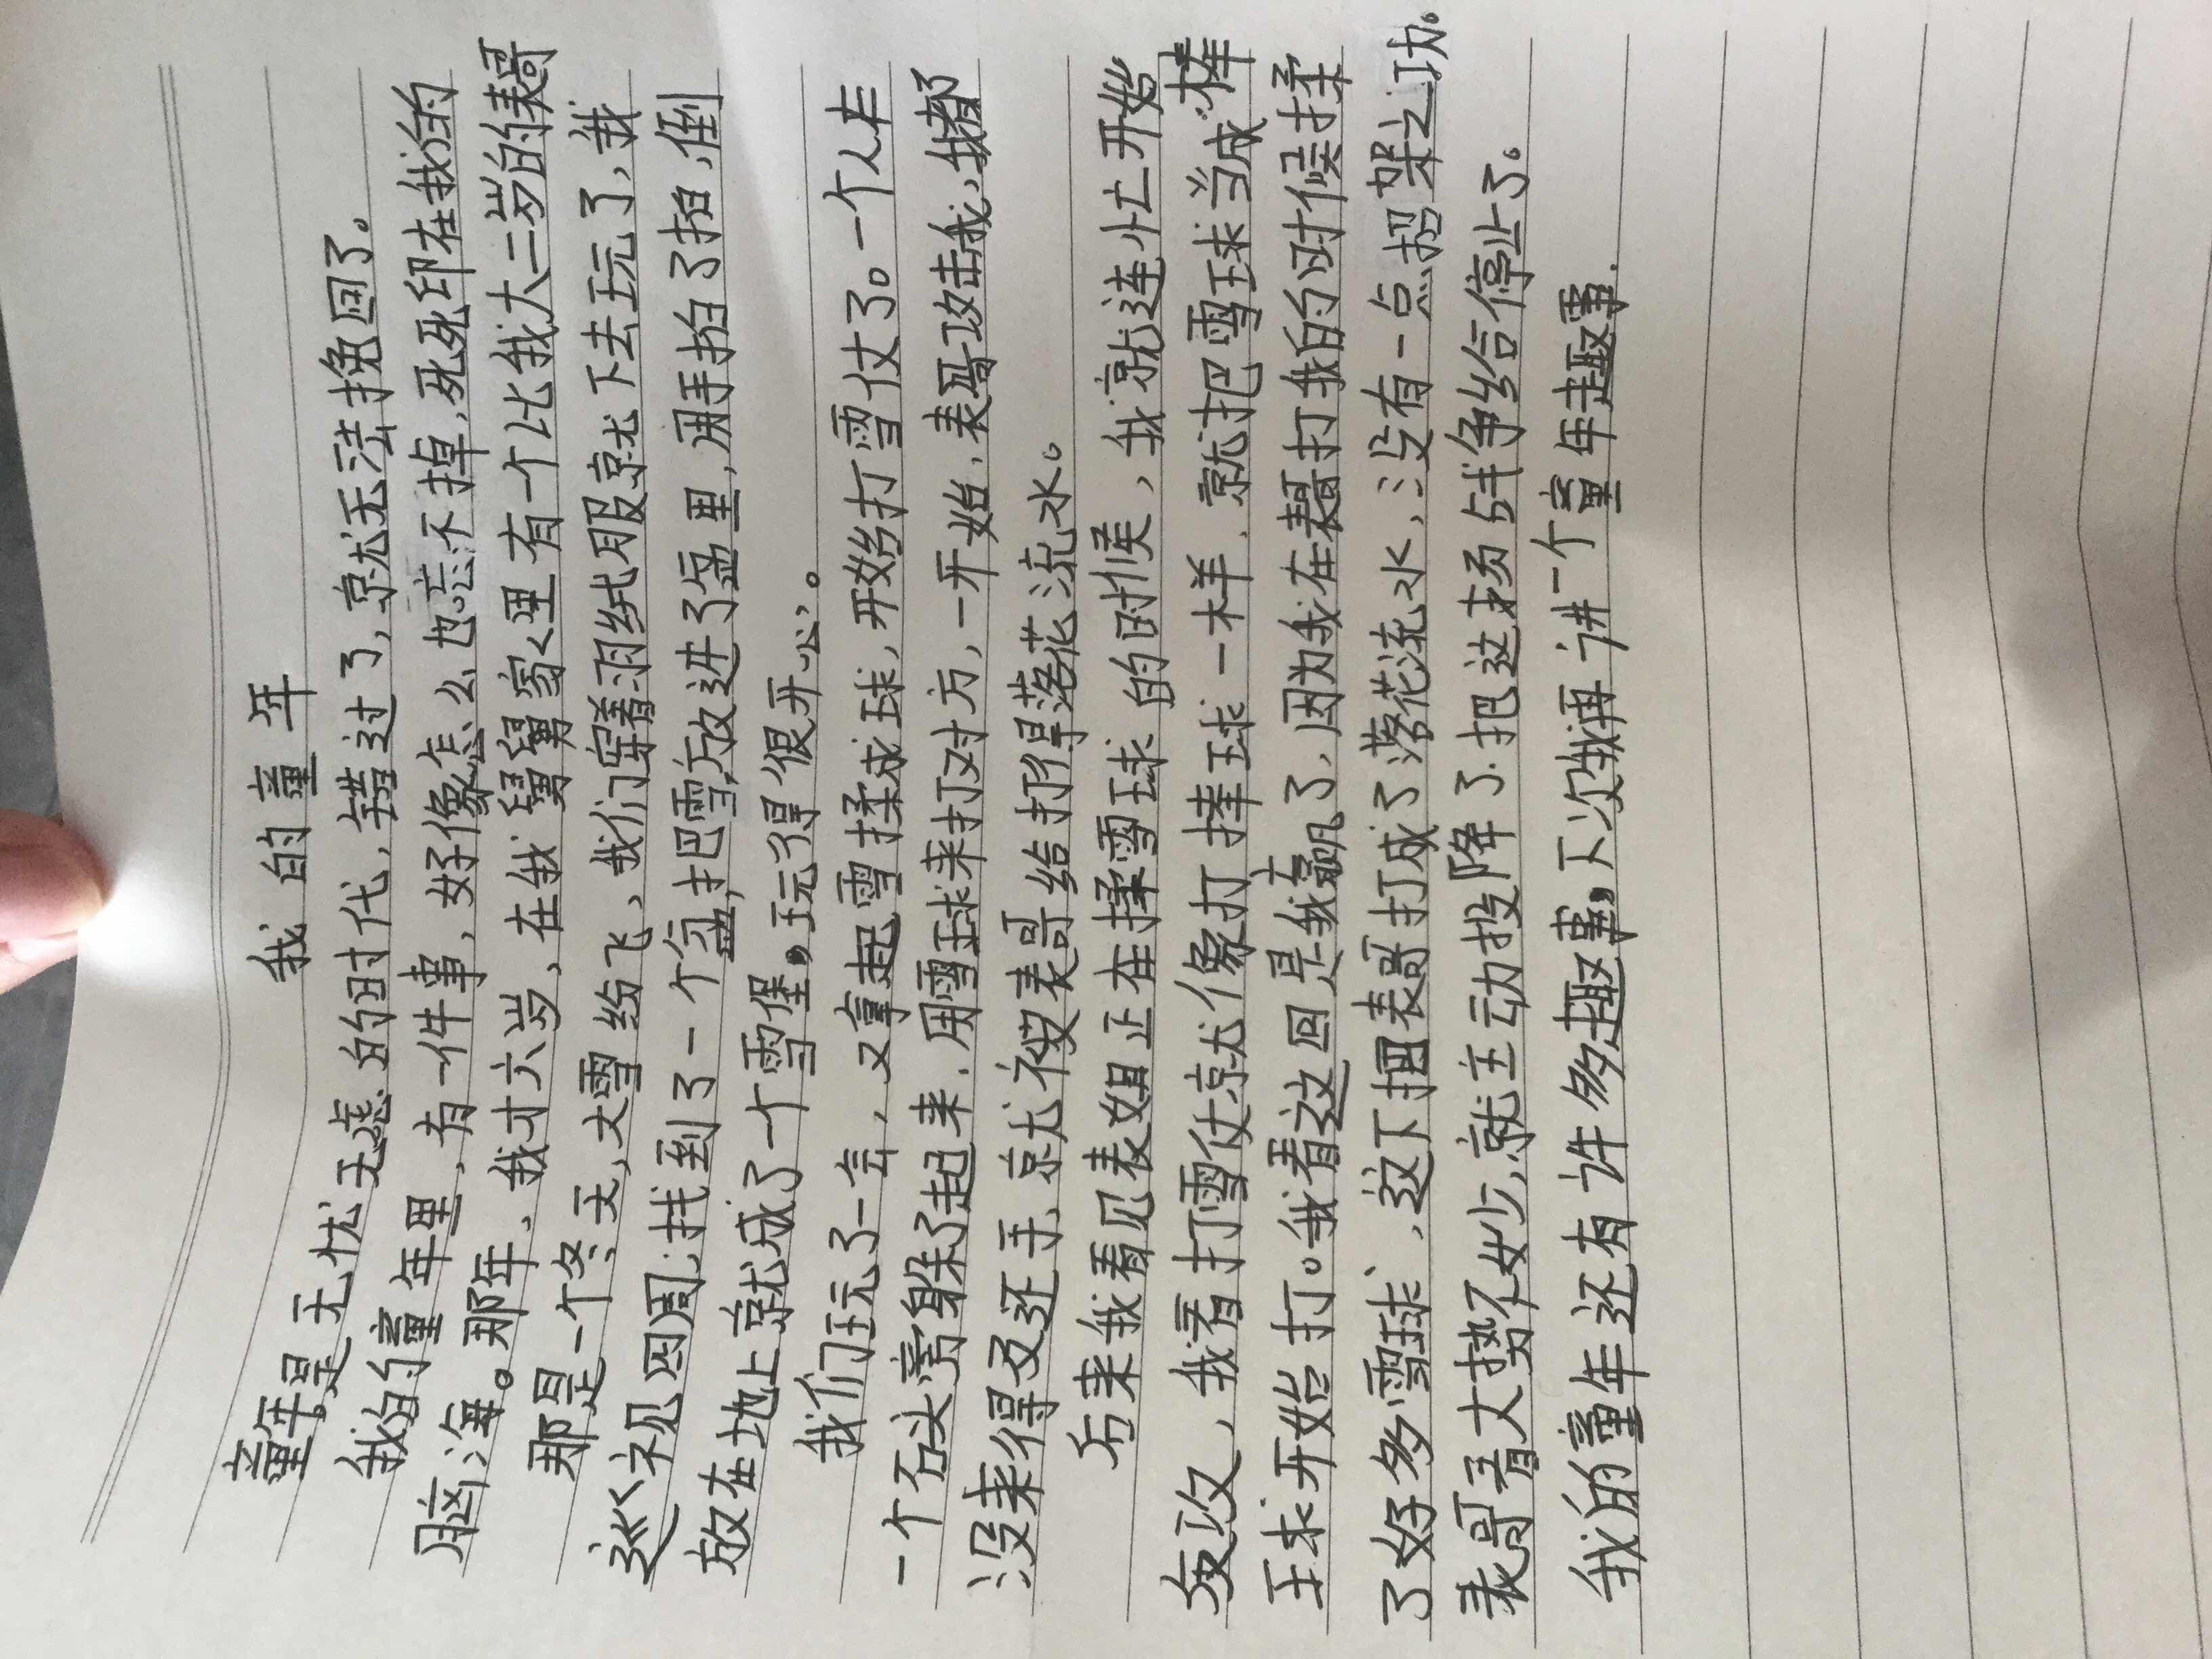 我的童年
童年是无忧无虑的时代，错过了，就无法挽回了。
我的童年里，有一件事，好像怎么也忘不掉，死死印在我的
脑海。那年，我才六岁，在我舅舅家里有一个比我大二岁的表哥
那是一个冬天，大雪纷飞，我们穿着羽绒服就下去玩了，我
巡视四周，找到了一个盆，把雪放进了盆里，用手拍了拍，倒
放在地上就成了一个雪堡，玩得很开心。
我们玩了一会，又拿起雪揉成球，开始打雪仗了。一个人在
一个石头旁躲了起来，用雪球来打对方，一开始，表哥攻击我，我都
没来得及还手，就被表哥给打得落花流水。
后来我看见表姐正在揉雪球的时候，我就连忙开始
反攻，我看打雪仗就像打捧球一样，就把雪球当成棒
球开始打。我看这回是我赢了，因为我在表哥打我的时候揉
了好多雪球，这下捆表哥打成了落花流水，没有一点招架之功。
表哥看大势不妙，就主动投降了，把这场战争给停止了。
我的童年还有许多趣事，下次我再讲一个童年趣事.